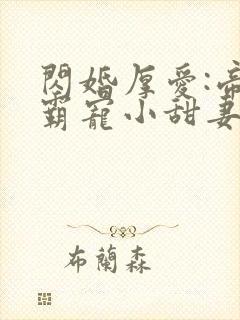 閃婚厚愛:帝
霸寵小甜妻
布蘭森